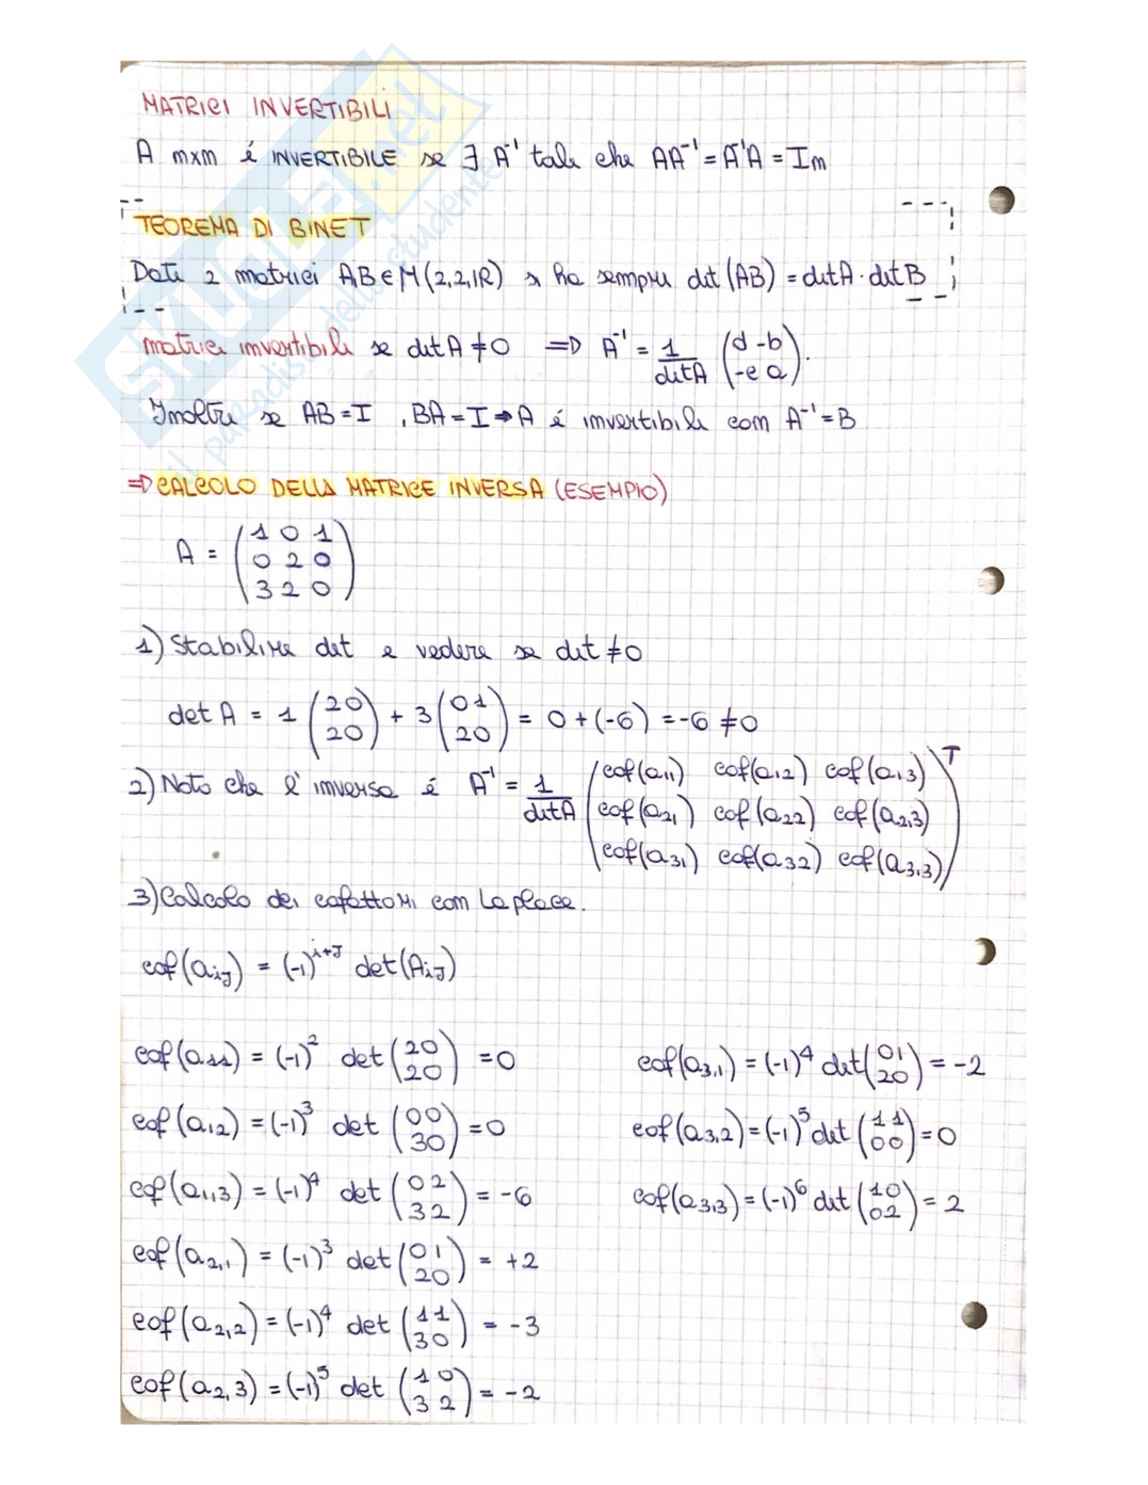 MATRICI INVERTIBILI
A mxm é INVERTIBILE se ∃ A⁻¹ tale che AA⁻¹ = A⁻¹A = Im
TEOREMA DI BINET
Dati 2 matrici A,B ∈ M(2,2,IR) si ha sempre det(AB) = detA · detB
matrici invertibili se detA ≠ 0 ⇒ A⁻¹ = 1/detA (d -b / -c a).
Inoltre se AB = I , BA = I → A é invertibile con A⁻¹ = B
⇒ CALCOLO DELLA MATRICE INVERSA (ESEMPIO)
A = (1 0 1 / 0 2 0 / 3 2 0)
1) Stabilire det e vedere se det ≠ 0
det A = 1 (2 0 / 2 0) + 3 (0 1 / 2 0) = 0 + (-6) = -6 ≠ 0
2) Noto che l'inversa é A⁻¹ = 1/detA (cof(a11) cof(a12) cof(a13) / cof(a21) cof(a22) cof(a2,3) / cof(a31) cof(a32) cof(a3,3))ᵀ
3) Calcolo dei cofattori con Laplace.
cof(aij) = (-1)^(i+J) det(AiJ)
cof(a11) = (-1)² det(2 0 / 2 0) = 0
cof(a12) = (-1)³ det(0 0 / 3 0) = 0
cof(a1,3) = (-1)⁴ det(0 2 / 3 2) = -6
cof(a2,1) = (-1)³ det(0 1 / 2 0) = +2
cof(a2,2) = (-1)⁴ det(1 1 / 3 0) = -3
cof(a2,3) = (-1)⁵ det(1 0 / 3 2) = -2
cof(a3,1) = (-1)⁴ det(0 1 / 2 0) = -2
cof(a3,2) = (-1)⁵ det(1 1 / 0 0) = 0
cof(a3,3) = (-1)⁶ det(1 0 / 0 2) = 2
SKUOLA.net
il paradiso dello studente